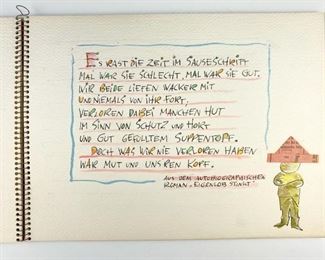 Es rast die Zeit im Sauseschritt
mal war sie schlecht, mal war sie gut.
Wir beide liefen wacker mit
und niemals von ihr fort,
verloren dabei manchen Hut
im Sinn von Schutz und Hort
und gut gefülltem Suppentopf.
Doch was wir nie verloren haben
war Mut und unsren Kopf.
Aus dem autobiographischen
Roman „Eigenlob stinkt“